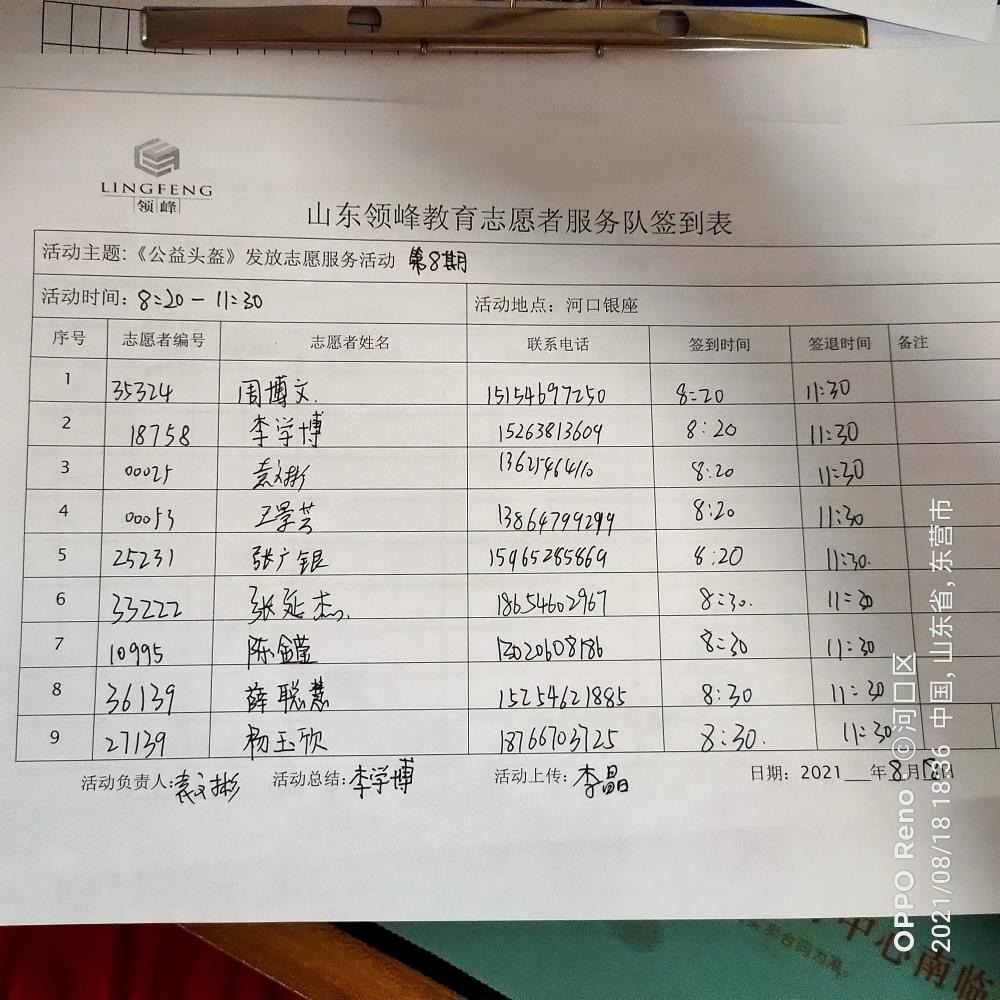 LINGFENG
领峰
山东领峰教育志愿者服务队签到表
活动主题:《公益头盔》发放志愿服务活动 第8期
活动时间: 8:20-11:30 活动地点: 河口银座
序号 志愿者编号 志愿者姓名 联系电话 签到时间 签退时间 备注
1 35324 周博文. 15154697250 8:20 11:30
2 18758 李学博 15263813609 8:20 11:30
3 00025 袁文彬 13625464110 8:20 11:30
4 00053 王景芸 13864799299 8:20 11:30
5 25231 张广银 15965285869 8:20 11:30.
6 33222 张延杰. 18654602967 8:30. 11:30
7 10995 陈金莹 13020608186 8:30 11:30
8 36139 薛聪慧 15254621885 8:30 11:30
9 27139 杨玉欣 18766703725 8:30. 11:30
活动负责人:袁文彬 活动总结:李学博 活动上传:李晶 日期: 2021___年8月18日
OPPO Reno · ©河口区
2021/08/18 18:36 中国, 山东省, 东营市
中心南临